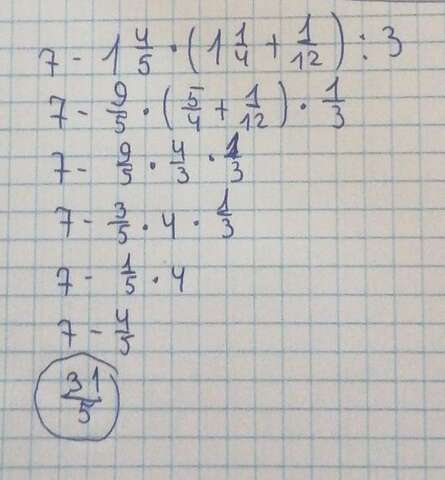 7 - 1 4/5 · (1 1/4 + 1/12) : 3
7 - 9/5 · (5/4 + 1/12) · 1/3
7 - 9/5 · 4/3 · 1/3
7 - 3/5 · 4 · 1/3
7 - 1/5 · 4
7 - 4/5
31/5